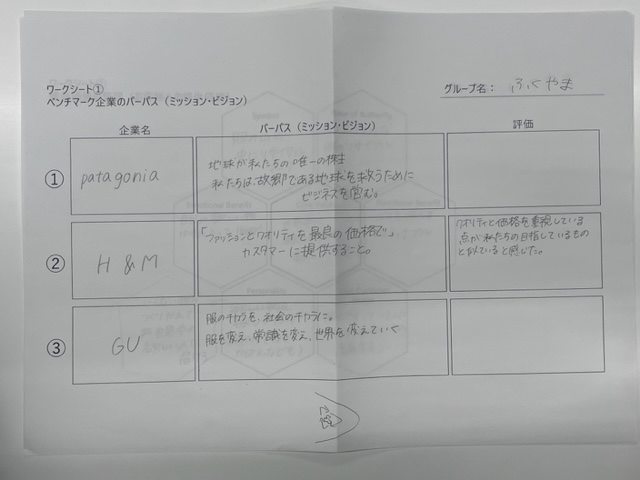 ワークシート①
ベンチマーク企業のパーパス（ミッション・ビジョン）
グループ名： ふくやま
企業名
パーパス（ミッション・ビジョン）
評価
①
patagonia
地球が私たちの唯一の株主
私たちは、故郷である地球を救うために
ビジネスを営む。
②
H & M
「ファッションとクオリティを最良の価格で」
カスタマーに提供すること。
クオリティと価格を重視している
点が私たちの目指しているもの
と似ていると感じた。
③
GU
服のチカラを、社会のチカラに。
服を変え、常識を変え、世界を変えていく